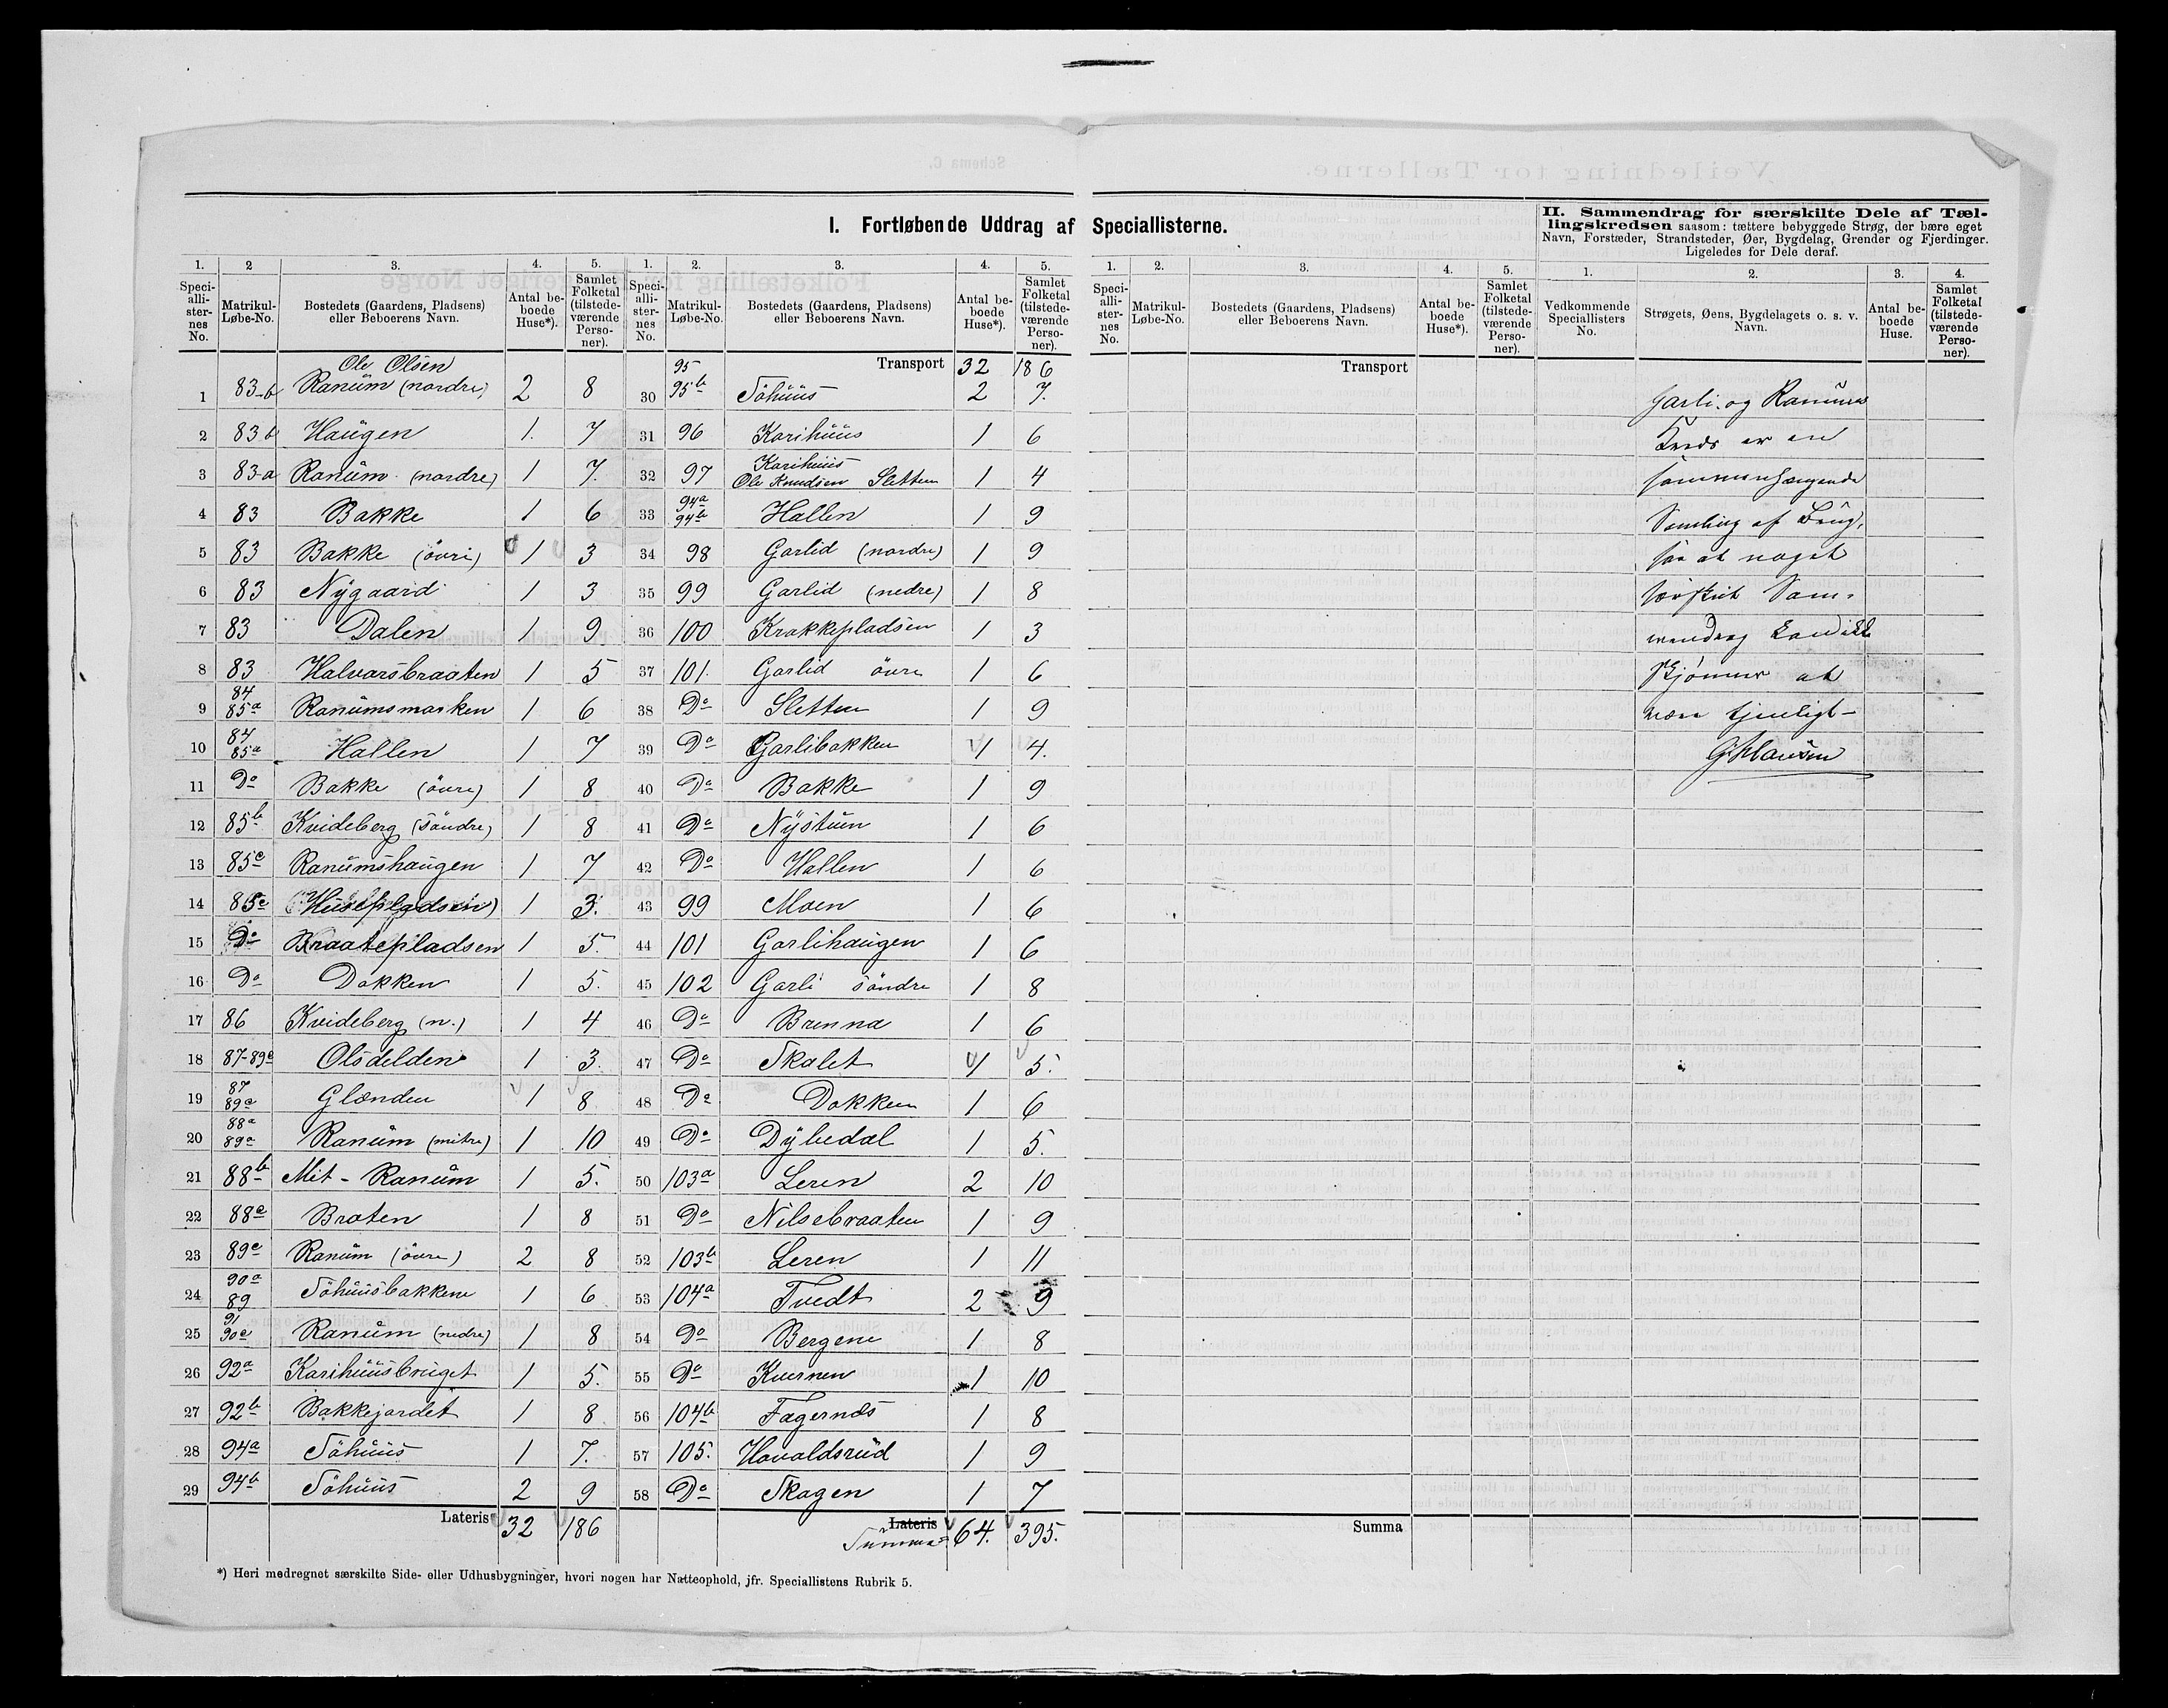 I. Fortløbende Uddrag af Speciallisterne.
II. Sammendrag for særskilte Dele af Tæl-
lingskredsen saasom: tættere bebyggede Strøg, der bære eget
Navn, Forstæder, Strandsteder, Øer, Bygdelag, Grender og Fjerdinger.
Ligeledes for Dele deraf.
1. Speci-alli-ster-nes No. 2 Matrikul-Løbe-No. 3. Bostedets (Gaardens, Pladsens) eller Beboerens Navn. 4. Antal be-boede Huse*). 5. Samlet Folketal (tilstede-værende Perso-ner).
Ole Olsen
1 83-b Ranum (nordre) 2 8
2 83 b Haugen 1. 7
3 83-a Ranum (nordre) 1 7.
4 83 Bakke 1 6
5 83 Bakke (övri) 1 3
6 83 Nygaard 1 3
7 83 Dalen 1 9
8 83 Halvarsbraaten 1 5
9 84 85a Ranumsmarken 1 6
10 84 85a Hallen 1 7
11 Do Bakke (övre) 1 8
12 85b Kvideberg (söndre) 1 8
13 85c Ranumshaugen 1 7
14 85c (Huseplødsen) 1 3.
15 Do Braatepladsen 1 5.
16 Do Dokken 1 5.
17 86 Kvideberg (n.) 1 4
18 87-89a Olsdelden 1 3.
19 87 89a Glænden 1 8
20 88a 89a Ranum (mitre) 1 10
21 88b Mit-Ranum 1 5.
22 88c Braten 1 8
23 89c Ranum (övre) 2 8
24 90a 89 Söhuusbakkene 1 6
25 91 90c Ranum (nedre) 1 8
26 92a Karihuusbruget 1 5.
27 92b Bakkejordet 1 8
28 94a Söhuus 1 7.
29 94b Söhuus 2 9
Lateris 32 186
1. Speci-alli-ster-nes No. 2. Matrikul-Løbe-No. 3. Bostedets (Gaardens, Pladsens) eller Beboerens Navn. 4. Antal be-boede Huse*). 5. Samlet Folketal (tilstede-værende Perso-ner).
Transport 32 186
30 95 95b Söhuus 2 7.
31 96 Karihuus 1 6
32 97 Karihuus Ole Knudsen Sletten 1 4
33 94a 94b Hallen 1 9
34 98 Garlid (nordre) 1 9
35 99 Garlid (nedre) 1 8
36 100 Krakkepladsen 1 3
37 101. Garlid övre 1 6
38 Do Sletten 1 9
39 Do Garlibakken 1 4.
40 Do Bakke 1 9
41 Do Nystuen 1 6
42 Do Hallen 1 6
43 99 Moen 1 6
44 101 Garlihaugen 1 6
45 102 Garli söndre 1 8
46 Do Brenna 1 6
47 Do Skalet 1 5.
48 Do Dokken 1 6
49 Do Dybedal 1 5.
50 103a Leren 2 10
51 Do Nilsebraaten 1 9
52 103b Leren 1 11
53 104a Tvedt 2 9
54 Do Bergene 1 8
55 Do Kvernen 1 10
56 104b Fagernds 1 8
57 105. Havaldsrud 1 9
58 Do Skogen 1 7
Lateris
Summa 64. 395.
1. Speci-alli-ster-nes No. 2. Matrikul-Løbe-No. 3. Bostedets (Gaardens, Pladsens) eller Beboerens Navn. 4. Antal be-boede Huse*). 5. Samlet Folketal (tilstede-værende Perso-ner).
Transport
Summa
1. Vedkommende Speciallisters No. 2. Strøgets, Øens, Bygdelagets o. s. v. Navn. 3. Antal be-boede Huse. 4. Samlet Folketal (tilstede-værende Perso-ner).
Garli- og Ranums
Kreds er en
sammenhængende
Samling af Brug,
saa at noget
særskilt Sam-
mendrag kan ikke
skjönnes at
være tjenligt-
*) Heri medregnet særskilte Side- eller Udhusbygninger, hvori nogen har Natteophold, jfr. Speciallistens Rubrik 5.